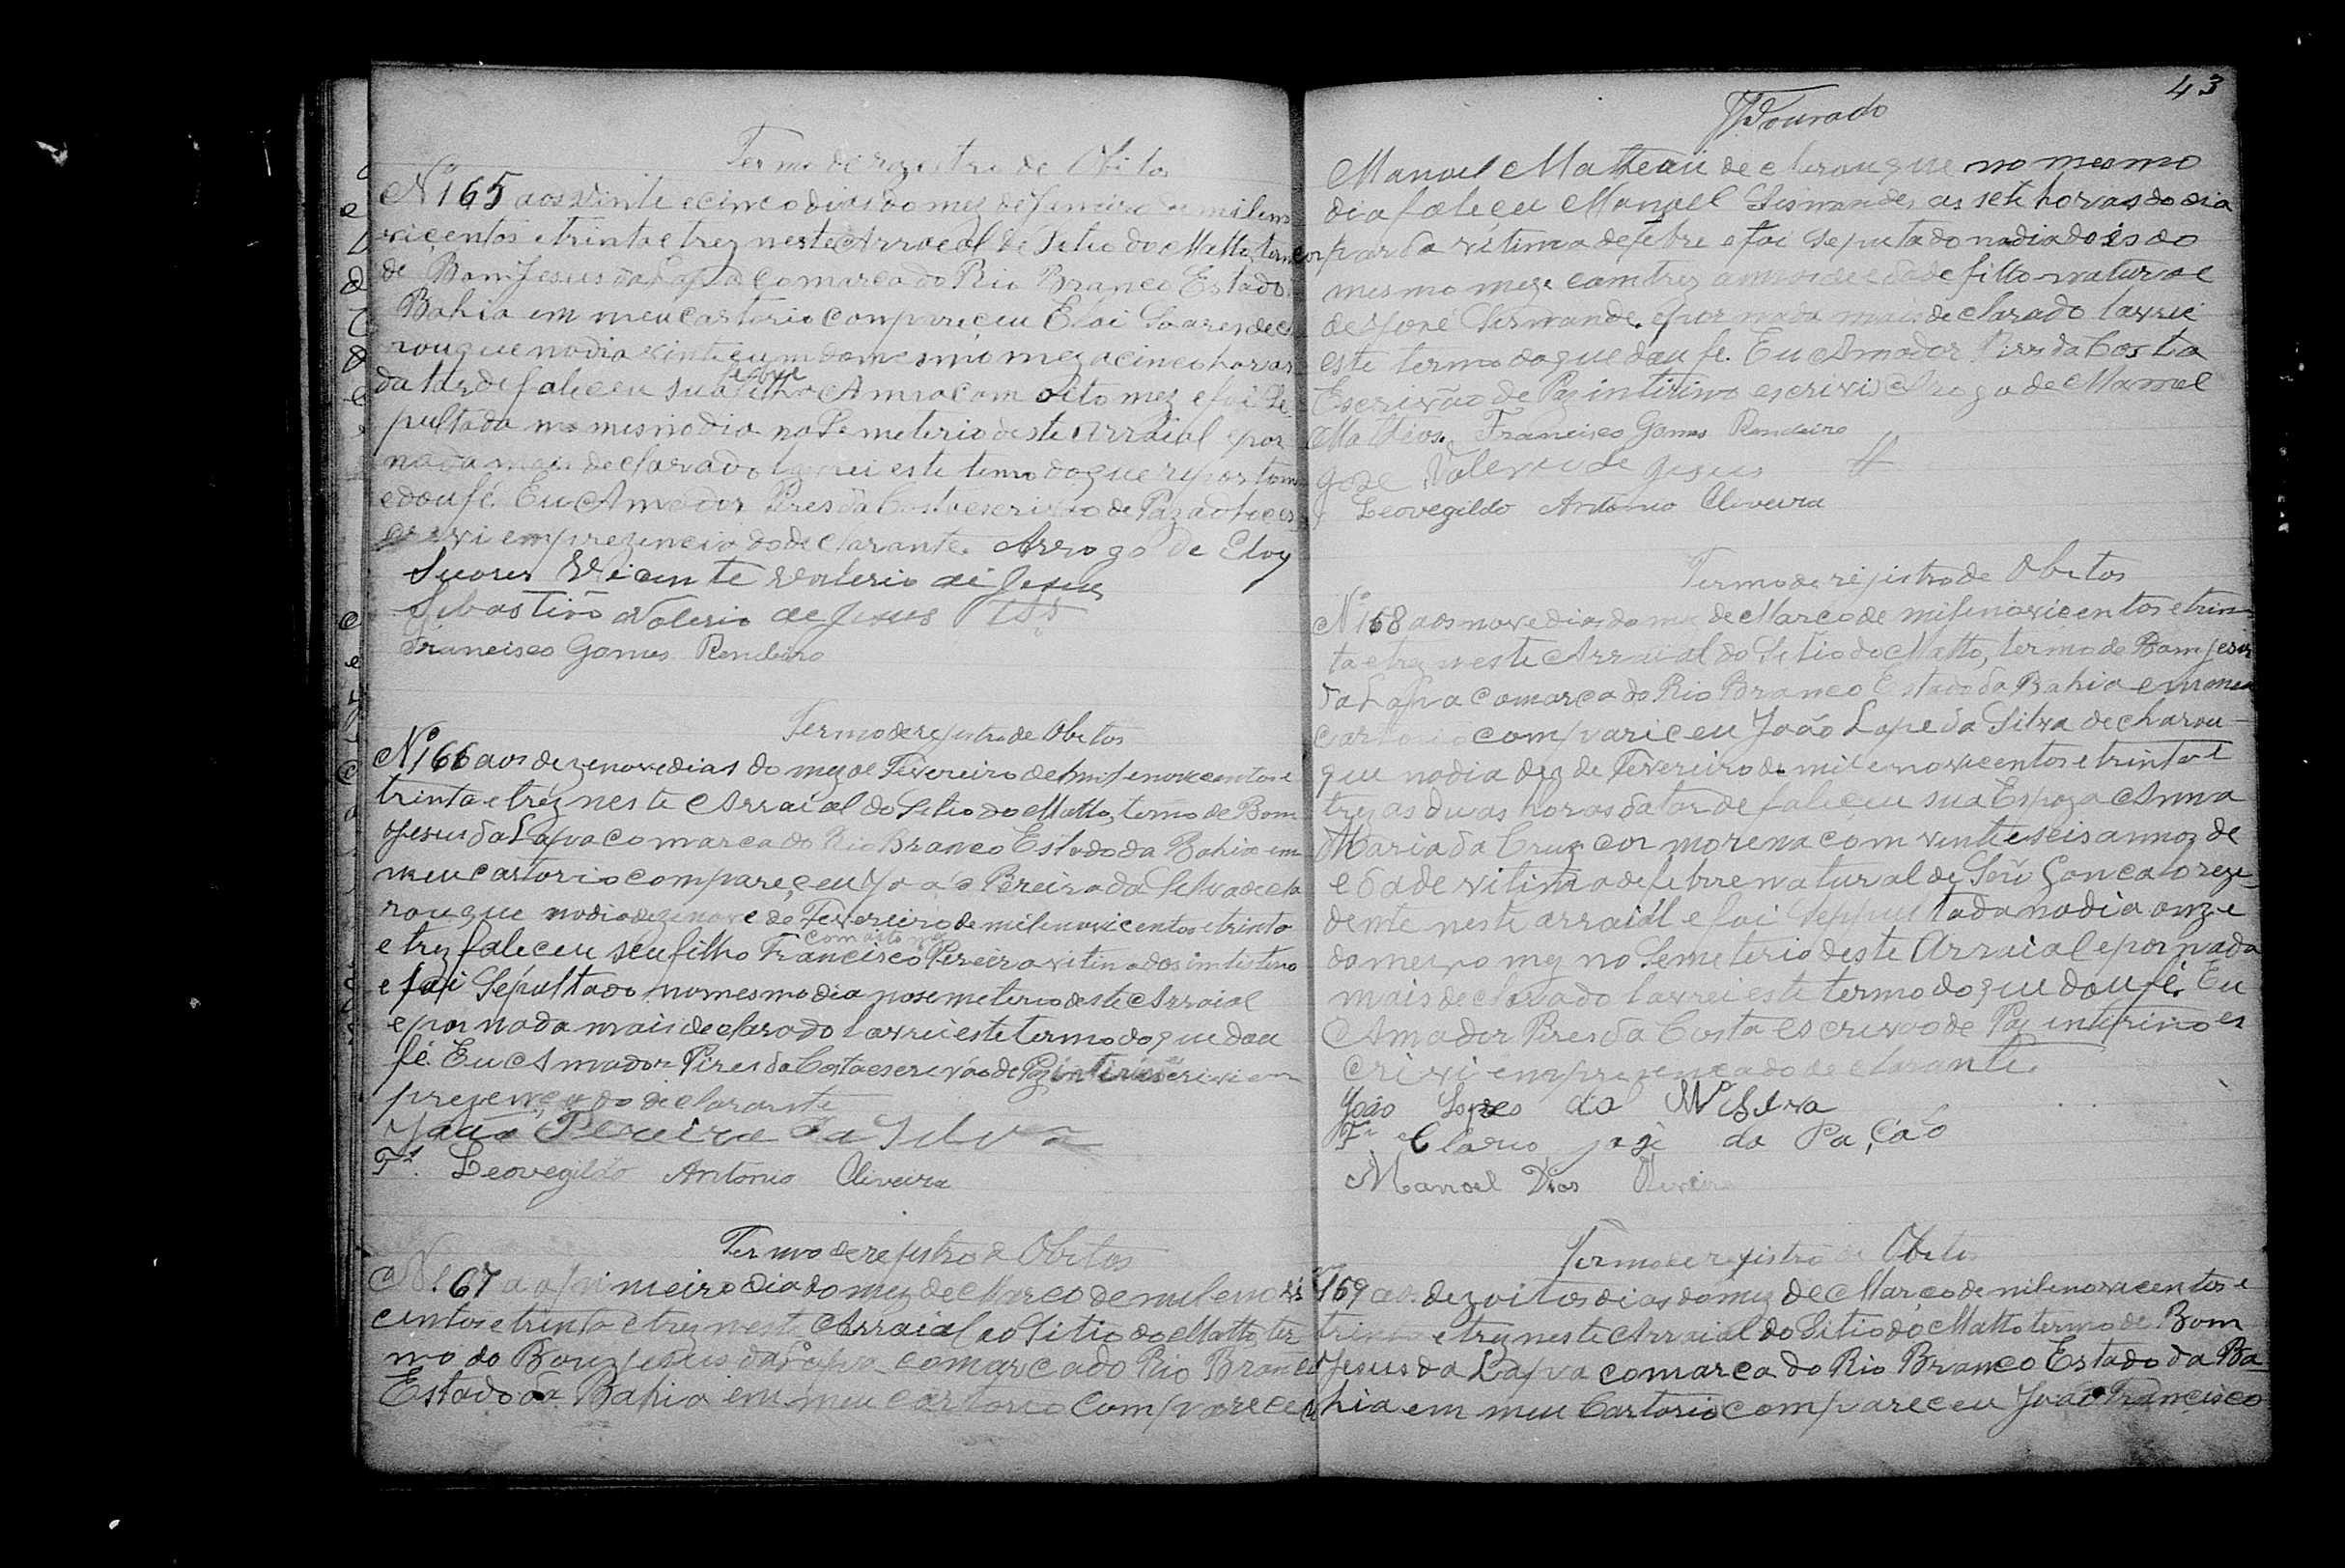 Termo de registro de Obitos
Nº 165 aos vinte e cinco dias do mez de Janeiro de mil eno
vicentos e trinta e trez neste Arraeal de Sitio do Matto, termo
de Bom Jesus da Lapa comarca do Rio Branco Estado
Bahia em meu cartorio conpareceu Eloi Soares de c
rou que no dia vinte e um do mesmo mez a cinco horas
da tarde faleceu sua filha Anna com oito mez e foi Se
febre
pultada no mesmo dia no Semeterio deste Arraial e por
nada mais declarado lavrei este temo do que reportom
e dou fé. Eu Amador Pires da Costa escrivão de Paz adhoc es
crivi em prezencia do declarante. Arrogo de Eloy
Suares Vicente Valerio de Jesus
Sebastião Valerio de Jesus
Francisco Gomes Rendeiro
Termo de registro de Obitos
Nº 166 aos dezenove dias do mez de Fevereiro de mil enovecentos e
trinta e trez neste Arraial do Sitio do Matto, termo de Bom
Jesus da Lapa comarca do Rio Branco Estado da Bahia em
meu cartorio compareceu João Pereira da Silva decla
rou que no dia dezenove de Fevereiro de mil enovicentos e trinta
com oito mez
e trez faleceu seu filho Francisco Pereira vitima dos intistino
e foi Sepultado no mesmo dia no semeterio deste Arraial
e por nada mais declarado lavrei este termo do que dou
fé. Eu Amador Pires da Costa escrivão de Paz intirino escrivi em
prezença do declarante
João Pereira da Silva
Tª. Leovegildo Antonio Oliveira
Termo de registro de Obitos
Nº. 67 ao primeiro dia do mez de Março de mil eno vi
centos e trinta e trez neste Arraial do Sitio do Matto, ter
mo do Bom Jesus da Lapa comarca do Rio Branco
Estado da Bahia em meu cartorio compareceu
43
Dourado
Manoel Matheus declarou que no mesmo
dia faleceu Manoel as sete horas do dia
cor parda vitima de febre e foi Seputado no dia dois do
mesmo mez e com trez annos de edade filho natural
de José Sernande. e por nada mais declarado lavrei
este termo do que dou fé. Eu Amador Pires da Costa
Escrivão de Paz intirino escrivi. Arogo de Manoel
Matheos. Francisco Gomes Rendeiro
José Valerio de Jesus
Leovegildo Antonio Oliveira
Termo de registro de Obitos
Nº 168 aos nove dias do mez de Março de mil enovicentos e trin
ta e trez neste Arraial do Sitio do Matto, termo de Bom Jesus
da Lapa comarca do Rio Branco Estado da Bahia em meu
cartorio compariceu João Lope da Silva declarou
que no dia dez de Fevereiro de mil enovecentos e trinta e
trez as duas horas da tarde faleceu sua Espoza Anna
Maria da Cruz cor morena com vinte e seis annos de
edade vitima de febre natural de São Goncalo reze
dente neste arraial e foi Seppultada no dia onze
do mesmo mez no Semeterio deste Arraial e por nada
mais declarado lavrei este termo do que dou fé. Eu
Amador Pires da Costa escrivão de Paz intirino es
crivi em prezenca do declarante.
João Lopes da Silva
Tª Clario José da Paição
Manoel Dias Oliveira
Termo de registro de Obitos
Nº 169 aos dezoitos dias do mez de Março de mil enovecentos e
trinta e trez neste Arraial do Sitio do Matto termo de Bom
Jesus da Lapa comarca do Rio Branco Estado da Ba
hia em meu Cartorio compareceu João Francisco